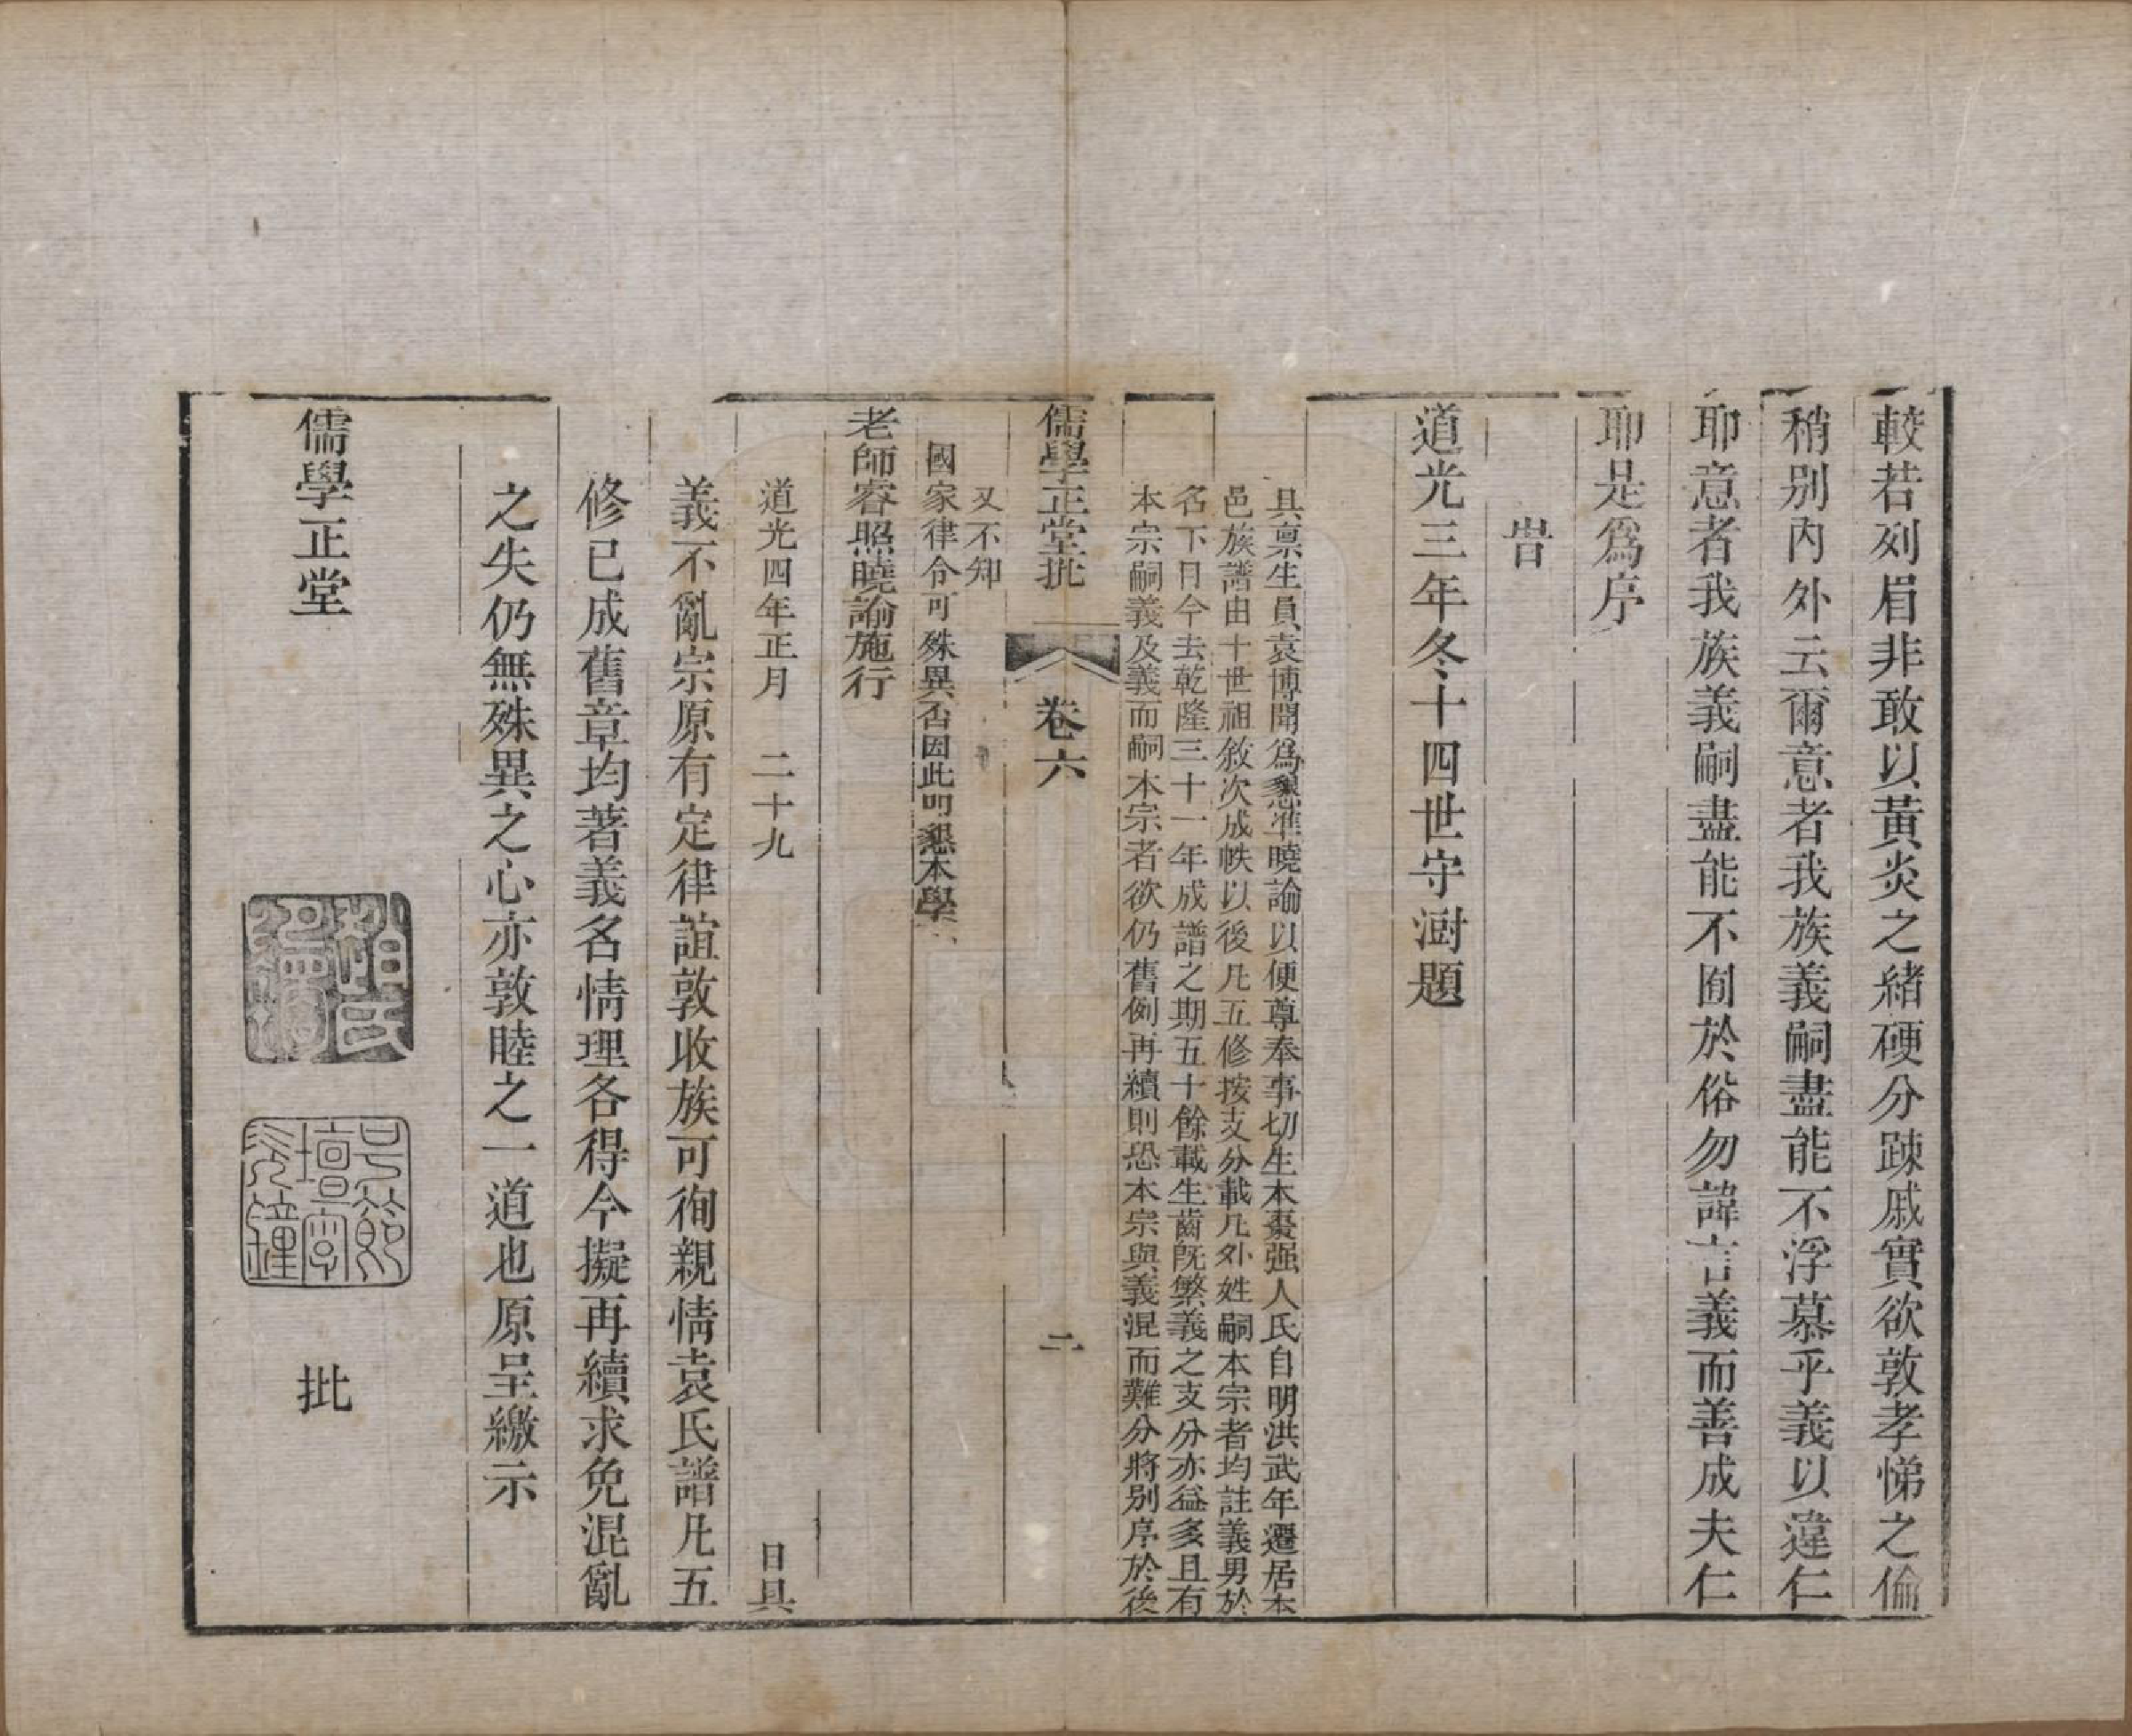 較若列眉非敢以黃炎之緒硬分踈戚實欲敦孝悌之倫
稍別內外云爾意者我族義嗣盡能不浮慕乎義以違仁
耶意者我族義嗣盡能不囿於俗勿諱言義而善成夫仁
耶是爲序
旹
道光三年冬十四世守澍題
具禀生員袁博聞爲懇准曉諭以便尊奉事切生本棗强人氏自明洪武年遷居本
邑族譜由十世祖敘次成帙以後凡五修按支分載凡外姓嗣本宗者均註義男於
名下日今去乾隆三十一年成譜之期五十餘載生齒旣繁義之支分亦益多且有
本宗嗣義及義而嗣本宗者欲仍舊例再續則恐本宗與義混而難分將别序於後
儒學正堂批
卷六
二
又不知
國家律令可殊異否因此叩懇本學
老師睿照曉諭施行
道光四年正月 二十九 日具
義不亂宗原有定律誼敦收族可徇親情袁氏譜凡五
修已成舊章均著義名情理各得今擬再續求免混亂
之失仍無殊異之心亦敦睦之一道也原呈繳示
儒學正堂
批